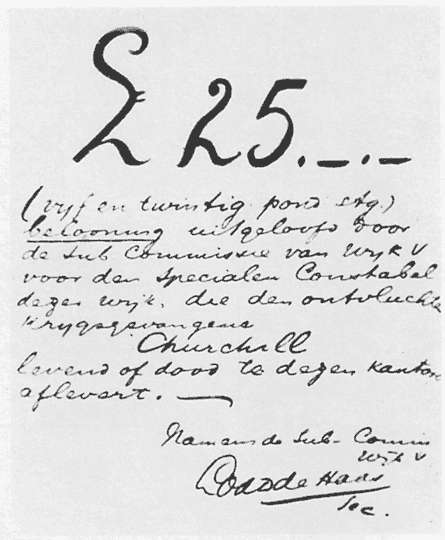 £ 25.–.–
(vyf en twintig pond stg.)
belooning uitgeloofd door
de Sub Commissie van Wyk V
voor den specialen Constabel
dezer wyk, die den ontvluchte
Krygsgevangene
Churchill
levend of dood te dezen kantore
aflevert. —
Namens de Sub-Comm
Wyk V
de Haas
Sec.